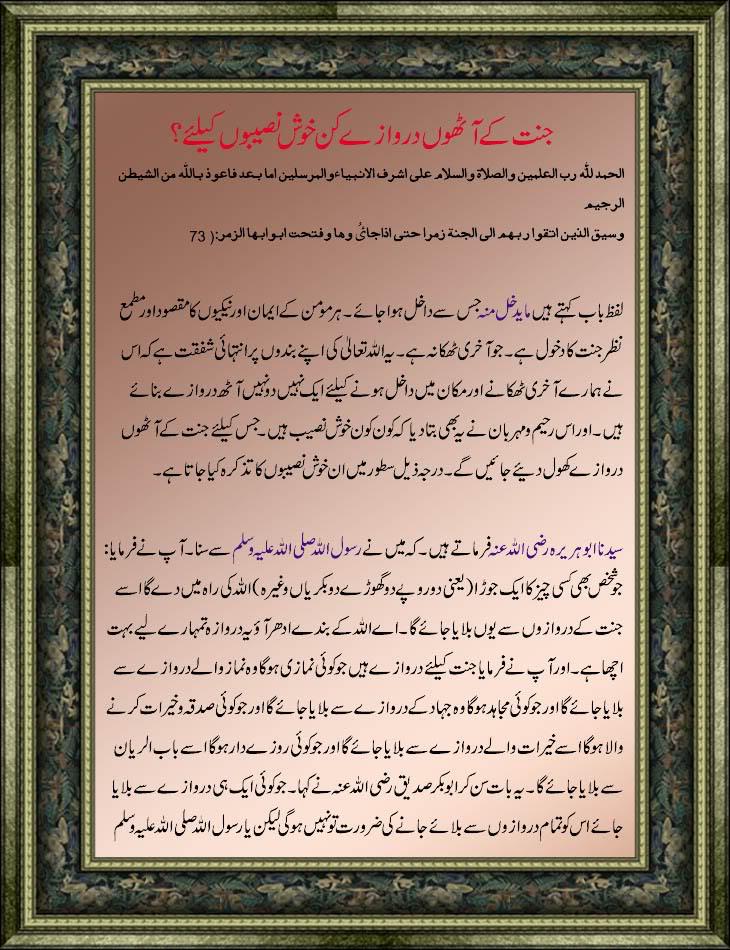 جنت کے آٹھوں دروازے کن خوش نصیبوں کیلئے؟
الحمد للہ رب العلمین والصلاۃ والسلام علی اشرف الانبیاءوالمرسلین اما بعد فاعوذ باللہ من الشیطن
الرجیم
وسیق الذین اتقوا ربھم الی الجنۃ زمرا حتی اذاجائُ وھا وفتحت ابوابھا الزمر:( 73
لفظ باب کہتے ہیں مایدخل منہ جس سے داخل ہوا جائے۔ ہر مومن کے ایمان اور نیکیوں کا مقصود اور مطمع
نظر جنت کا دخول ہے۔ جو آخری ٹھکانہ ہے۔ یہ اللہ تعالیٰ کی اپنے بندوں پر انتہائی شفقت ہے کہ اس
نے ہمارے آخری ٹھکانے اور مکان میں داخل ہونے کیلئے ایک نہیں دو نہیں آٹھ دروازے بنائے
ہیں۔ اور اس رحیم و مہربان نے یہ بھی بتا دیا کہ کون کون خوش نصیب ہیں۔ جس کیلئے جنت کے آٹھوں
دروازے کھول دیئے جائیں گے۔ درجہ ذیل سطور میں ان خوش نصیبوں کا تذکرہ کیا جاتا ہے۔
سیدنا ابو ہریرہ رضی اللہ عنہ فرماتے ہیں۔ کہ میں نے رسول اللہ صلی اللہ علیہ وسلم سے سنا۔ آپ نے فرمایا:
جو شخص بھی کسی چیز کا ایک جوڑا (یعنی دو روپے دو گھوڑے دو بکریاں وغیرہ) اللہ کی راہ میں دے گا اسے
جنت کے دروازوں سے یوں بلایا جائے گا۔ اے اللہ کے بندے ادھر آؤ یہ دروازہ تمہارے لیے بہت
اچھا ہے۔ اور آپ نے فرمایا جنت کیلئے دروازے ہیں جو کوئی نمازی ہوگا وہ نماز والے دروازے سے
بلایا جائے گا اور جو کوئی مجاہد ہوگا وہ جہاد کے دروازے سے بلایا جائے گا اور جو کوئی صدقہ و خیرات کرنے
والا ہوگا اسے خیرات والے دروازے سے بلایا جائے گا اور جو کوئی روزے دار ہوگا اسے باب الریان
سے بلایا جائے گا۔ یہ بات سن کر ابوبکر صدیق رضی اللہ عنہ نے کہا۔ جو کوئی ایک ہی دروازے سے بلایا
جائے اس کو تمام دروازوں سے بلائے جانے کی ضرورت تو نہیں ہوگی لیکن یا رسول اللہ صلی اللہ علیہ وسلم